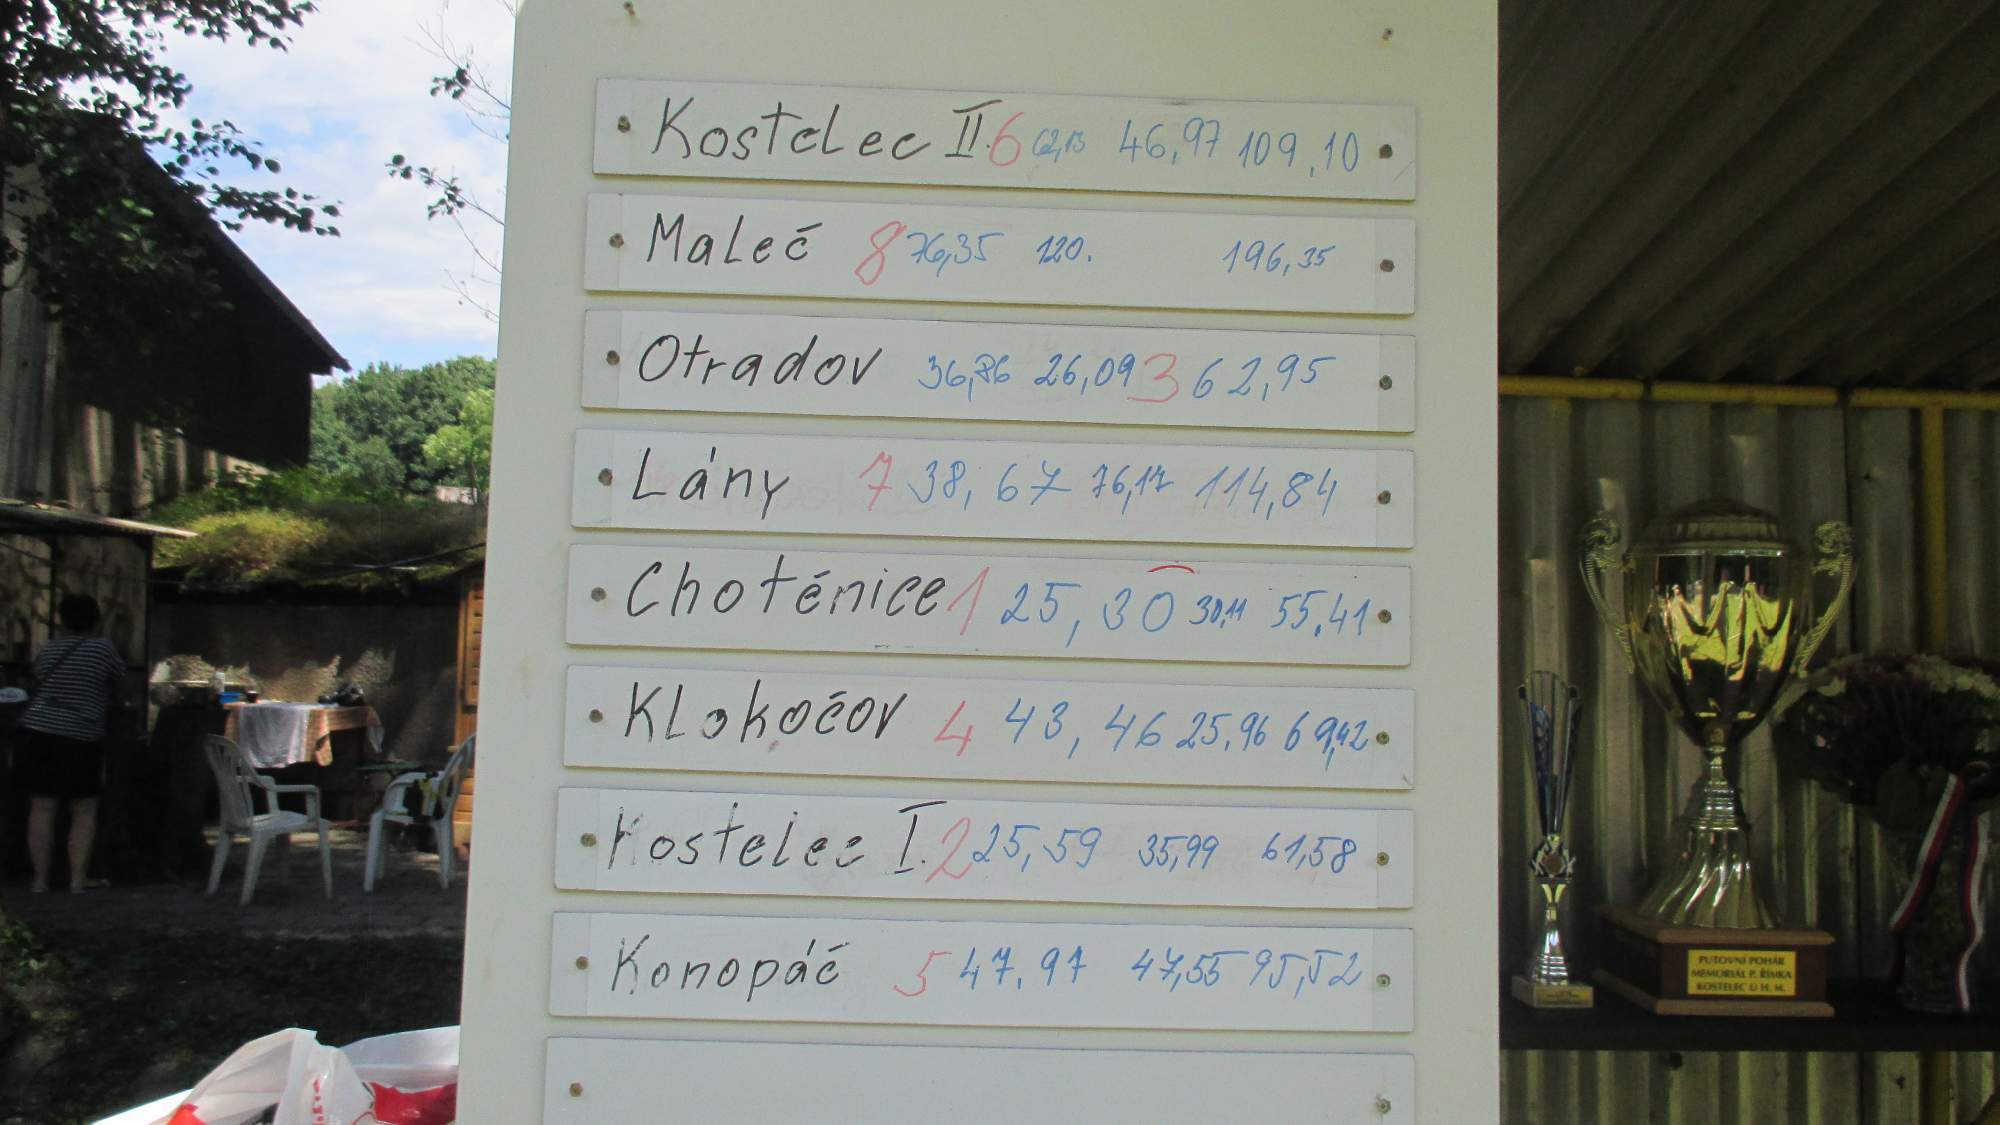 Kostelec II. 6 62,13 46,97 109,10
Maleč 8 76,35 120. 196,35
Otradov 36,86 26,09 3 62,95
Lány 7 38,67 76,17 114,84
Chotěnice 1 25,30 30,11 55,41
Klokočov 4 43,46 25,96 69,42
Kostelec I. 2 25,59 35,99 61,58
Konopáč 5 47.97 47,55 95,52
PUTOVNÍ POHÁR
MEMORIÁL P. ŘÍMKA
KOSTELEC U H. M.